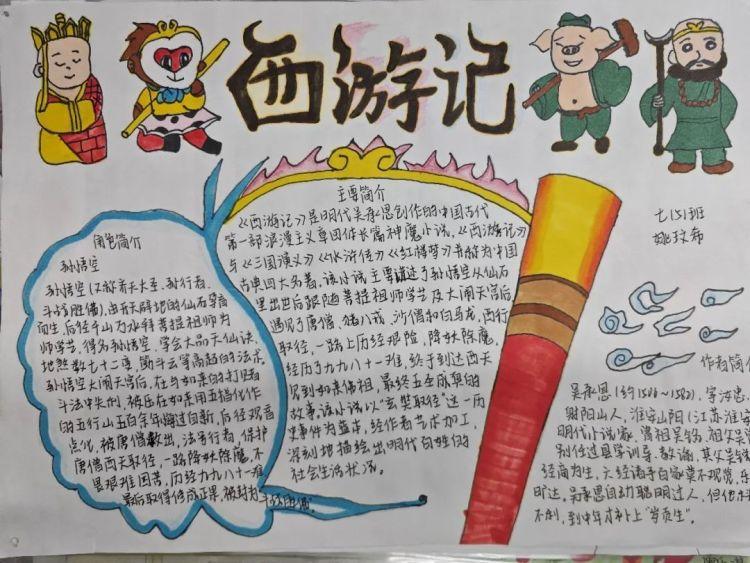 西游记
七(5)班
角色简介
孙悟空
孙悟空(又称齐天大圣、孙行者、
斗战胜佛),由开天辟地的仙石孕育
而生,后经千山万水拜菩提祖师为
师学艺,得名孙悟空,学会大品天仙诀、
地煞数七十二变,筋斗云等高超的法术,
孙悟空大闹天宫后,在与如来的打赌
斗法中失利,被压在如来用五指化作
的五行山五百余年悔过自新,后经观音
点化,被唐僧救出,法号行者,保护
唐僧西天取经,一路降妖除魔,不
畏艰难困苦,历经九九八十一难
最后取得修成正果,被封为斗战胜佛。
主要简介
《西游记》是明代吴承恩创作的中国古代
第一部浪漫主义章回体长篇神魔小说,《西游记》
与《三国演义》《水浒传》《红楼梦》并称为中国
古典四大名著。该小说主要讲述了孙悟空从仙石
里出世后跟随菩提祖师学艺及大闹天宫后,
遇见了唐僧、猪八戒、沙僧和白马龙,西行
取经,一路上历经艰险,降妖除魔,
经历了九九八十一难,终于到达西天
见到如来佛祖,最终五圣成真的
故事该小说以"玄奘取经"这一历
史事件为蓝本,经作者艺术加工,
深刻地描绘出明代百姓的
社会生活状况。
作者简
吴承恩(约1500-1582),字汝忠,
射阳山人,淮安山阳(江苏淮安
明代小说家。
别任过县学训导、教谕,其父吴
经商为生,
旷达,吴承恩自幼聪明过人,但他
不利,到中年才补上"岁贡生"。